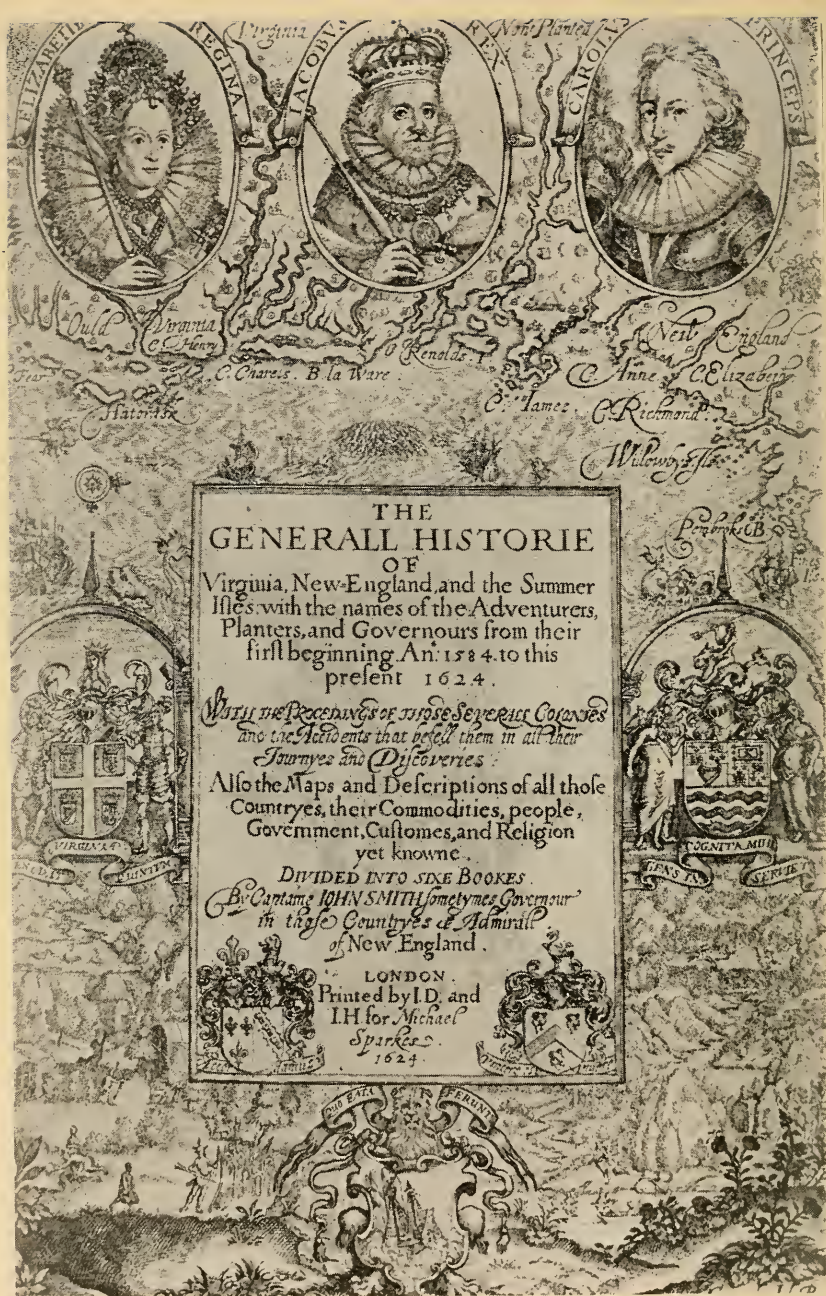 ELIZABETH REGINA
IACOBVS REX
CAROLVS PRINCEPS
Virginia
Now Planted
Ould Virginia
C. Henry
C. Charels. B la Ware.
Renolds. I
New England
C. Anne
C. Elizabeth
C. Iames
C. Richmond.
Fear
Hatorask
Willowbys Iles
Pembroks B
THE
GENERALL HISTORIE
OF
Virginia, New-England, and the Summer
Iſles: with the names of the Adventurers,
Planters, and Governours from their
firſt beginning. An.º 1584. to this
preſent 1624.
WITH THE PROCEDINGS OF THOSE SEVERALL COLONIES
and the Accidents that befell them in all their
Journyes and Diſcoveries.
Alſo the Maps and Deſcriptions of all thoſe
Countryes, their Commodities, people,
Government, Cuſtomes, and Religion
yet knowne.
DIVIDED INTO SIXE BOOKES.
By Captaine IOHN SMITH ſometymes Governour
in thoſe Countryes & Admirall
of New England.
LONDON.
Printed by I.D. and
I.H. for Michael
Sparkes.
1624.
EN DAT VIRGINIA QUINTVM
GENS IN COGNITA MIHI SERVIET
QUO FATA FERUNT